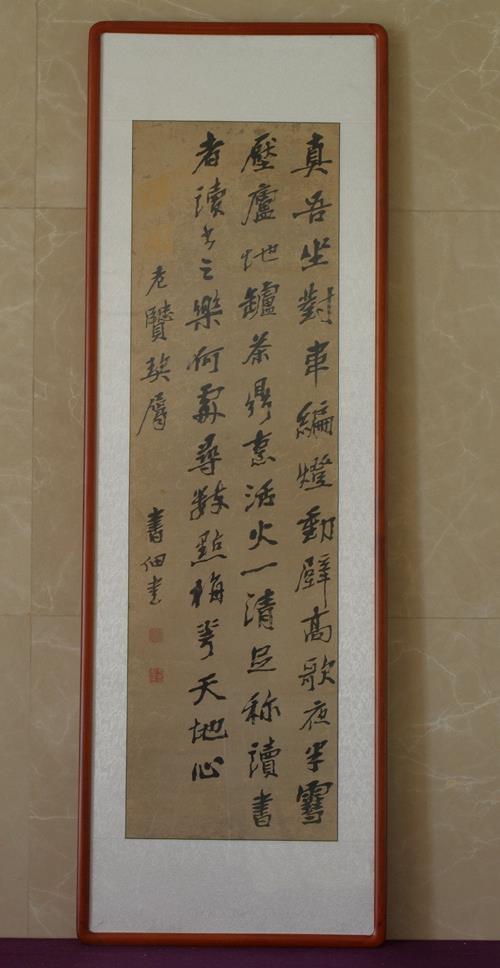 真吾坐對韋編燈動壁高歌夜半雪
壓廬地罏茶鼎烹活火一清足称讀書
者讀書之樂何處尋數點梅花天地心
老賢契屬
書佃書